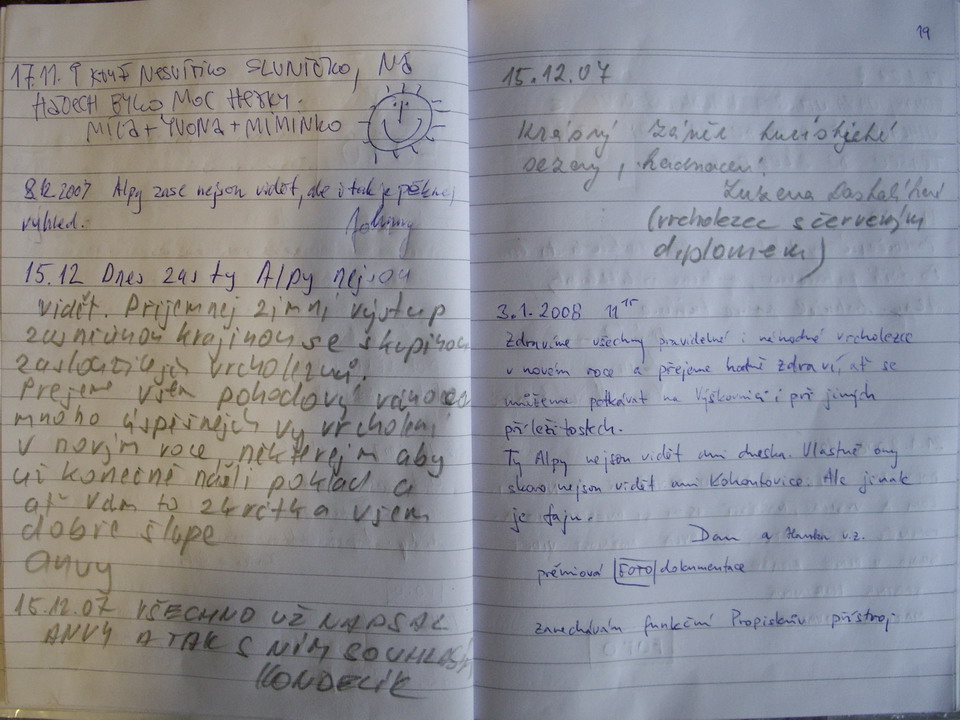 17.11. I KDYŽ NESVÍTILO SLUNÍČKO, NA
HÁDECH BYLO MOC HEZKY.
MÍLA + YVONA + MIMINKO
8.12.2007 Alpy zase nejsou vidět, ale i tak je pěknej
výhled.
15.12 Dnes zas ty Alpy nejsou
vidět. Příjemnej zimní výstup
zasněženou krajinou se skupinou
zasloužilejch vrcholezců.
Přejeme všem pohodový vánoce
mnoho úspěšnejch vyvrcholení
v novým roce některejm aby
už konečně našli poklad a
ať vám to zkrátka všem
dobře šlape
Anvy
15.12.07 VŠECHNO UŽ NAPSAL
ANVY A TAK S NÍM SOUHLASÍ
KONDELÍK
19
15.12.07
Krásný závěr
sezony,
Zuzana
(vrcholezec s červeným
diplomem)
3.1.2008 11 15
Zdravíme všechny pravidelné i náhodné vrcholezce
v novém roce a přejeme hodně zdraví, ať se
můžeme potkávat na Výškovnici i při jiných
příležitostech.
Ty Alpy nejsou vidět ani dneska. Vlastně ony
skoro nejsou vidět ani Kohoutovice. Ale jinak
je fajn.
Dan a Hanka v.z.
prémiová FOTO dokumentace
zanechávám funkční Propiskův přístroj